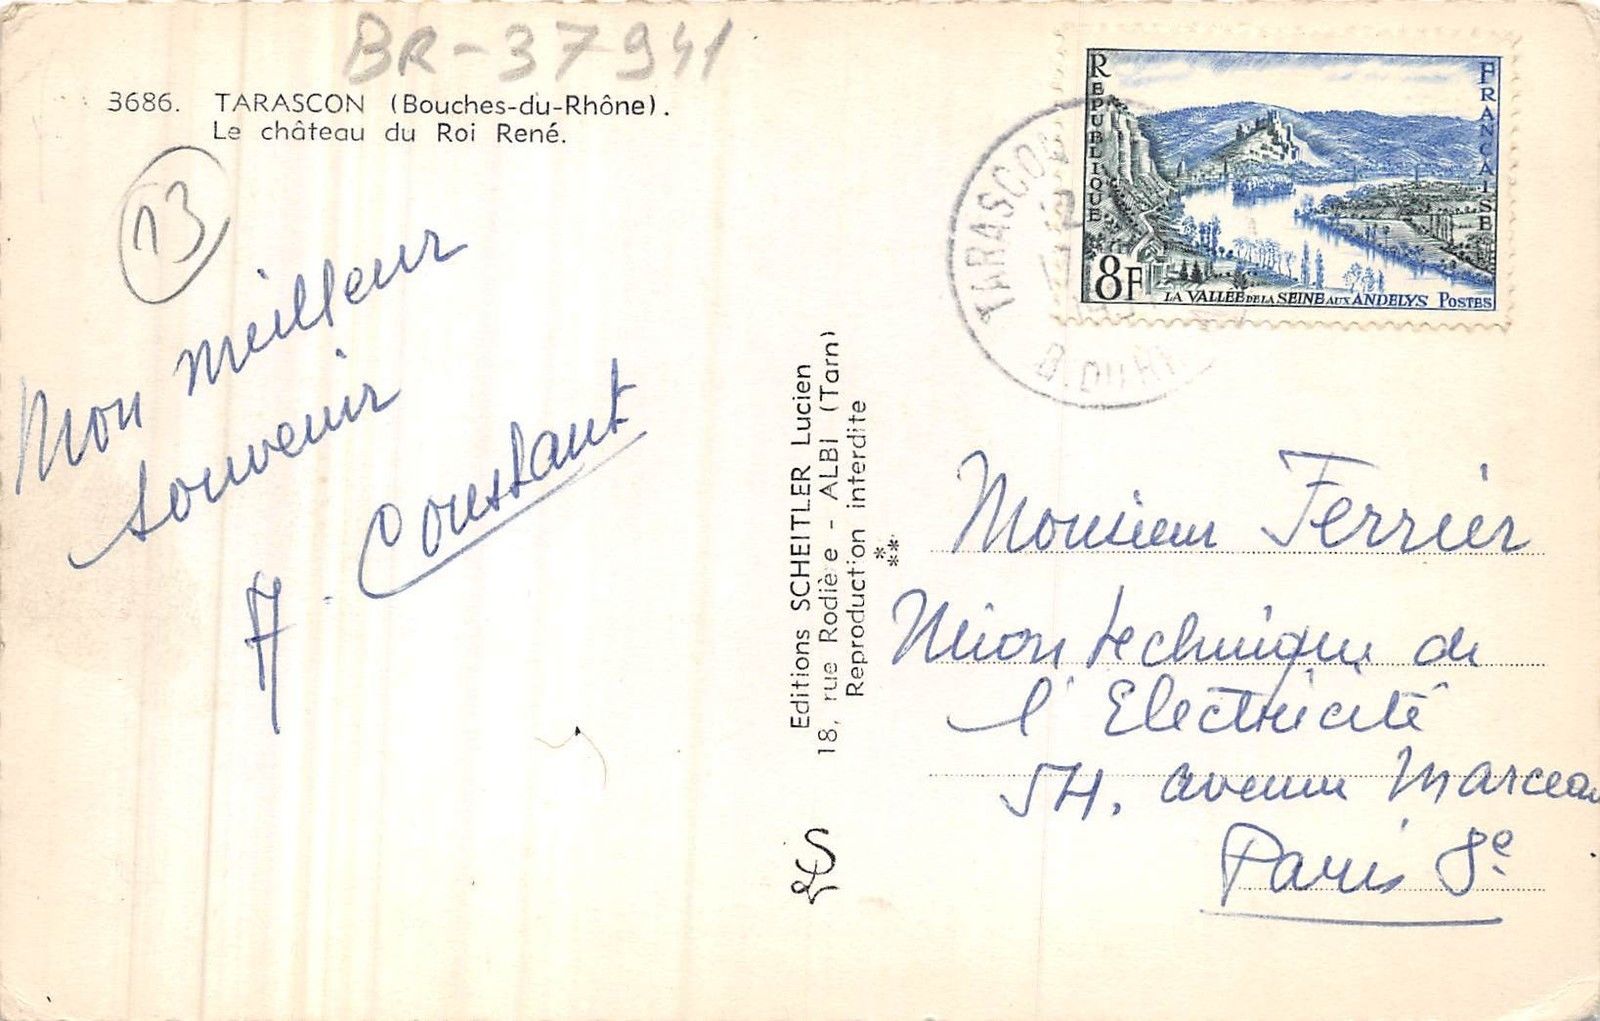 BR-37941
3686. TARASCON (Bouches-du-Rhône).
Le château du Roi René.
13
Mon meilleur
souvenir
A. Constant
Editions SCHEITLER Lucien
18, rue Rodière - ALBI (Tarn)
Reproduction interdite
REPUBLIQUE
FRANCAISE
8F
LA VALLÉE DE LA SEINE AUX ANDELYS POSTES
TARASCON
B. DU RH
Monsieur Ferrier
Union technique de
l'Electricité
54, avenue Marceau
Paris 8e